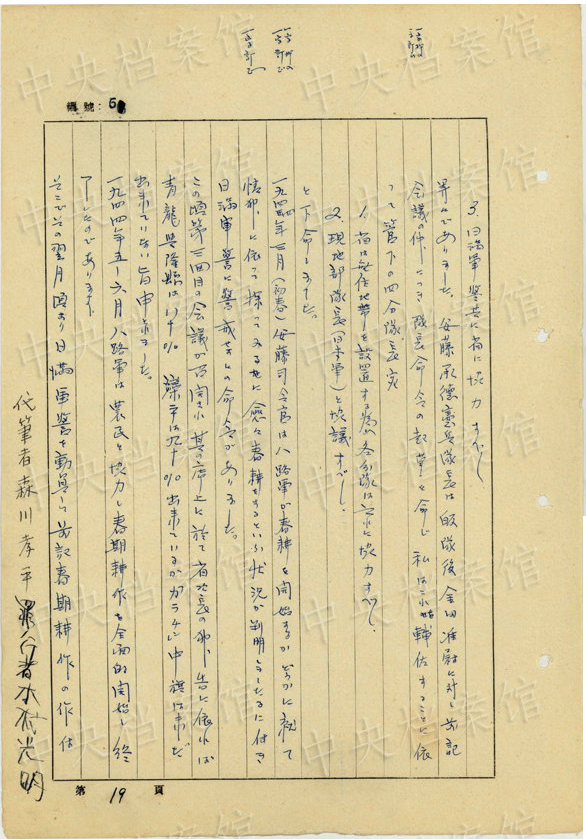 編號：5
3. 日満軍警共に省に協力すべし
等々でありました。安藤承徳憲兵隊長は帰隊後金田准尉に対し前記
会議の件につき隊長命令の起草を命じ私は之れを輔佐することに依
って管下の四分隊長宛
1. 省は無住地帯を設置する為め各分隊は之れに協力すべし.
2. 現地部隊長（日本軍）と協議すべし.
と下命しました。
一九四四年三月（初春）安藤司令官は八路軍が春耕を開始するかどうかに就て
情報に依って探ってみる
日満軍警に警戒せよとの命令がありました。
この頃第三回目の会議が再開され其の席上に於て省次長の報告に依れば
青龍興隆縣は八十% 灤平は九十%出来ているがカラチン中旗は未だ
出来ていない旨申しました。
一九四四年五－六月八路軍は農民と協力し春期耕作を全面的開始し終
了したのであります。
そこでその翌月頃より日満軍警を動員して前記春期耕作の作
代筆者森川孝平
罪行者木村光明
第 19 頁
中央档案馆